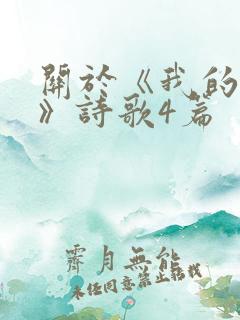 關於《我的
》詩歌4篇
霽月無能
未經同意禁止轉載